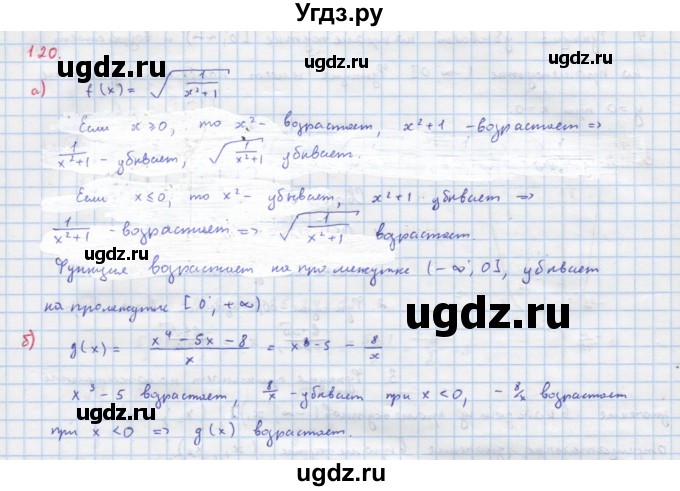 Угдз.ру
120.
gdz.ru
а) f(x) = √(1/(x²+1))
Если x ⩾ 0, то x² - возрастает, x²+1 - возрастает =>
1/(x²+1) - убывает, √(1/(x²+1)) убывает.
gdz.ru
gdz.ru
Если x ≤ 0, то x² - убывает, x²+1 убывает =>
1/(x²+1) - возрастает => √(1/(x²+1)) возрастает
gdz.ru
Функция возрастает на промежутке (-∞; 0], убывает
на промежутке [0; +∞)
gdz.ru
б) g(x) = (x⁴ - 5x - 8)/x = x³ - 5 - 8/x
gdz.ru
x³ - 5 возрастает, 8/x - убывает при x < 0, - 8/x возрастает
gdz.ru
gdz.ru
при x < 0 => g(x) возрастает.
ugdz.ru
ugdz.ru